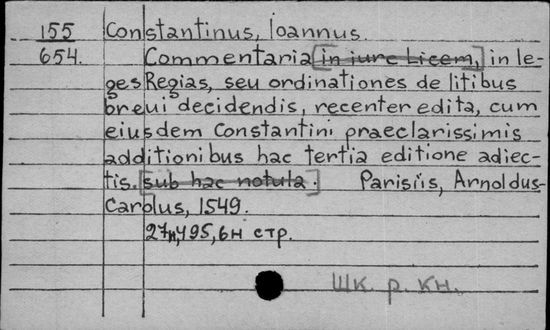 155 Constantinus, Ioannus.
654. Commentaria [in iure Licem,] in le-
ges Regias, seu ordinationes de litibus
breui decidendis, recenter edita, cum
eiusdem Constantini praeclarissimis
additionibus hac tertia editione adiec-
tis. [sub hac notula.] Parisiis, Arnoldus
Carolus, 1549.
27н, 495, 6н стр.
Шк. р. кн.